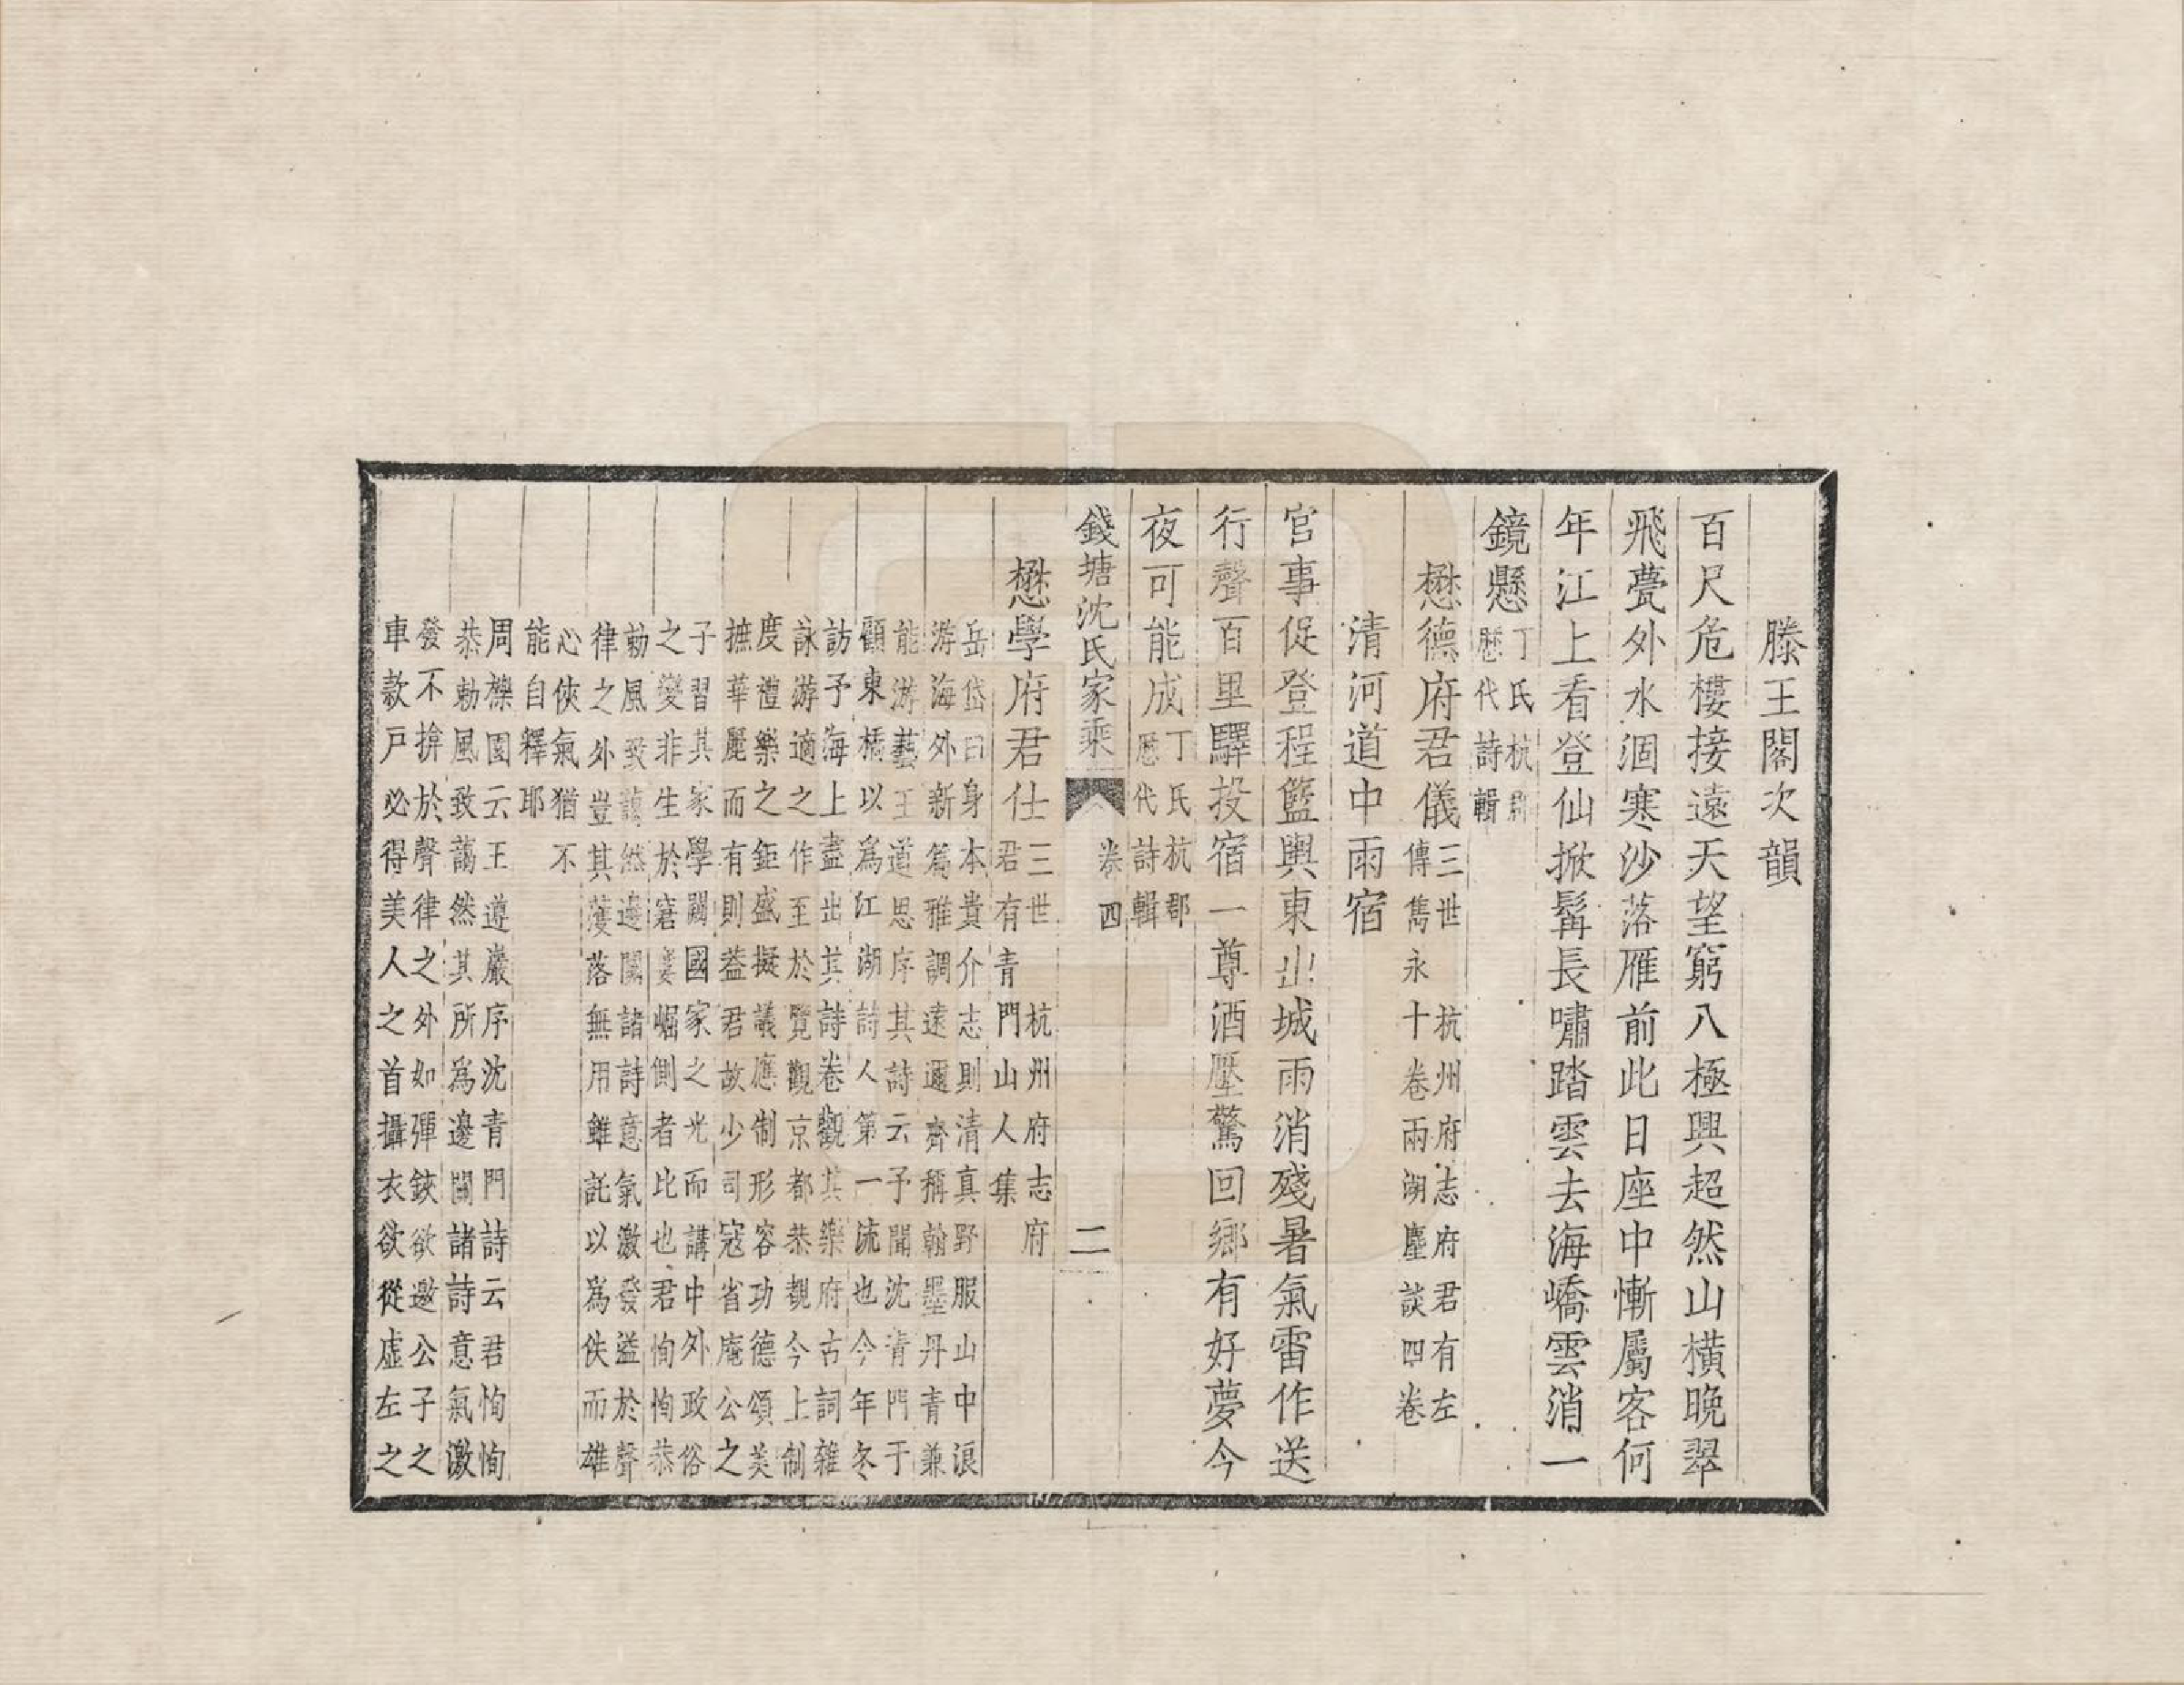 滕王閣次韻
百尺危樓接遠天望窮八極興超然山橫晚翠
飛甍外水涸寒沙落雁前此日座中慚屬客何
年江上看登仙掀髯長嘯踏雲去海嶠雲消一
鏡懸丁氏杭郡
歷代詩輯
懋德府君儀三世 杭州府志府君有左
傳雋永十卷兩湖麈談四卷
清河道中雨宿
官事促登程籃輿東出城雨消殘暑氣雷作送
行聲百里驛投宿一尊酒壓驚回鄉有好夢今
夜可能成丁氏杭郡
歷代詩輯
錢塘沈氏家乘 卷四 二
懋學府君仕三世 杭州府志府
君有青門山人集
岳岱曰身本貴介志則清真野服山中浪
游海外新篇雅調遠邇齊稱翰墨丹青兼
能游藝王道思序其詩云予聞沈青門于
顧東橋以為江湖詩人第一流也今年冬
訪予海上盡出其詩卷觀其樂府古詞雜
詠游適之作至於覽觀京都恭覩今上制
度禮樂之鉅盛擬議應制形容功德頌美
摭華麗而有則蓋君故少司寇省庵公之
子習其家學閑國家之光而講中外政俗
之變非生於窘寠崛側者比也君恂恂恭
勑風致藹然邊關諸詩意氣激發溢於聲
律之外豈其濩落無用雖託以為佚而雄
心俠氣猶不
能自釋耶
周櫟園云王遵巖序沈青門詩云君恂恂
恭勑風致藹然其所為邊關諸詩意氣激
發不揜於聲律之外如彈鋏欲邀公子之
車款戸必得美人之首攝衣欲從虛左之